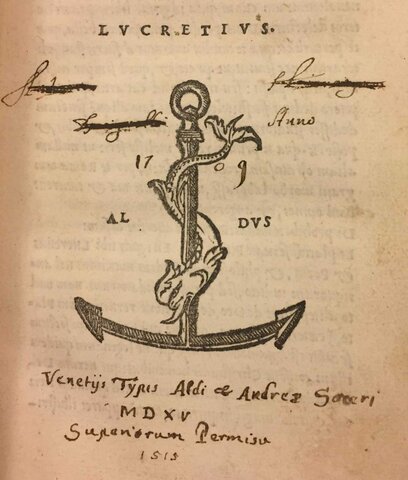 LVCRETIVS.
Anno
17 09
AL DVS
Venetijs Typis Aldi & Andreæ Soceri
MDXV
Superiorum Permisu
1515